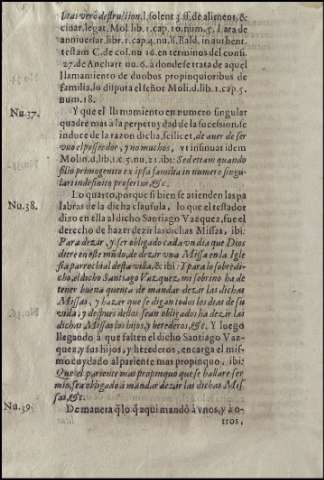 litas verò destruction. l. solent. §. ff. de aliment. &
ciuar. legat. Mol. lib. 1. cap. 10. num. 5. Lara de
anniuersar. libr. 1. cap. 4. nu. 15. Bald. in authent.
testam C. de col. nu 16. en terminos del consi.
27. de Anchar. nu. 6. à donde se trata de aquel
llamamiento de duobos propinquioribus de
familia, lo disputa el señor Mol. d. lib. 1. cap. 5.
num. 18.
Nu. 37. Y que el llamamiento en numero singular
quadre mas à la perpetuydad de la sucession, se
induce de la razon dicha, scilicet, de auer de ser
vno el possessor, y no muchos, vt insinuat idem
Molin. d. lib. 1. c. 5. nu. 21. ibi: Sed etiam quando
filio primogenito ex ipsa familia in numero singu-
lari indefinitè prefertur, &c.
Nu. 38. Lo quarto, porque si bien se atienden las pa
labras de la dicha clausula, lo que el testador
dixo en ella al dicho Santiago Vazquez, fue el
derecho de hazer dezir las dichas Missas, ibi:
Para dezar, y ser obligado cada vn dia que Dios
diere en este mũdo, de dezir vna Missa en la Igle
sia parrochial desta villa, & ibi: Y para lo sobredi-
cho, el dicho Santiago Vazquez, mi sobrino ha de
tener buena quenta de mandar dezir las dichas
Missas, y hazer que se digan todos los dias de su
vida, y despues dellos sean obligados ha dezir las
dichas Missas los hijos, y herederos, &c. Y luego
llegando à que falten el dicho Santiago Vaz-
quez, y sus hijos, y herederos, encarga el mis-
mo cuydado al pariente mas propinquo, ibi:
Que el pariente mas propinquo que se hallare ser
mio, sea obligado à mandar dezir las dichas Mis
sas, &c.
Nu. 39. De manera q̃ lo q̃ aqui mandò à vnos, y à o-
tros,